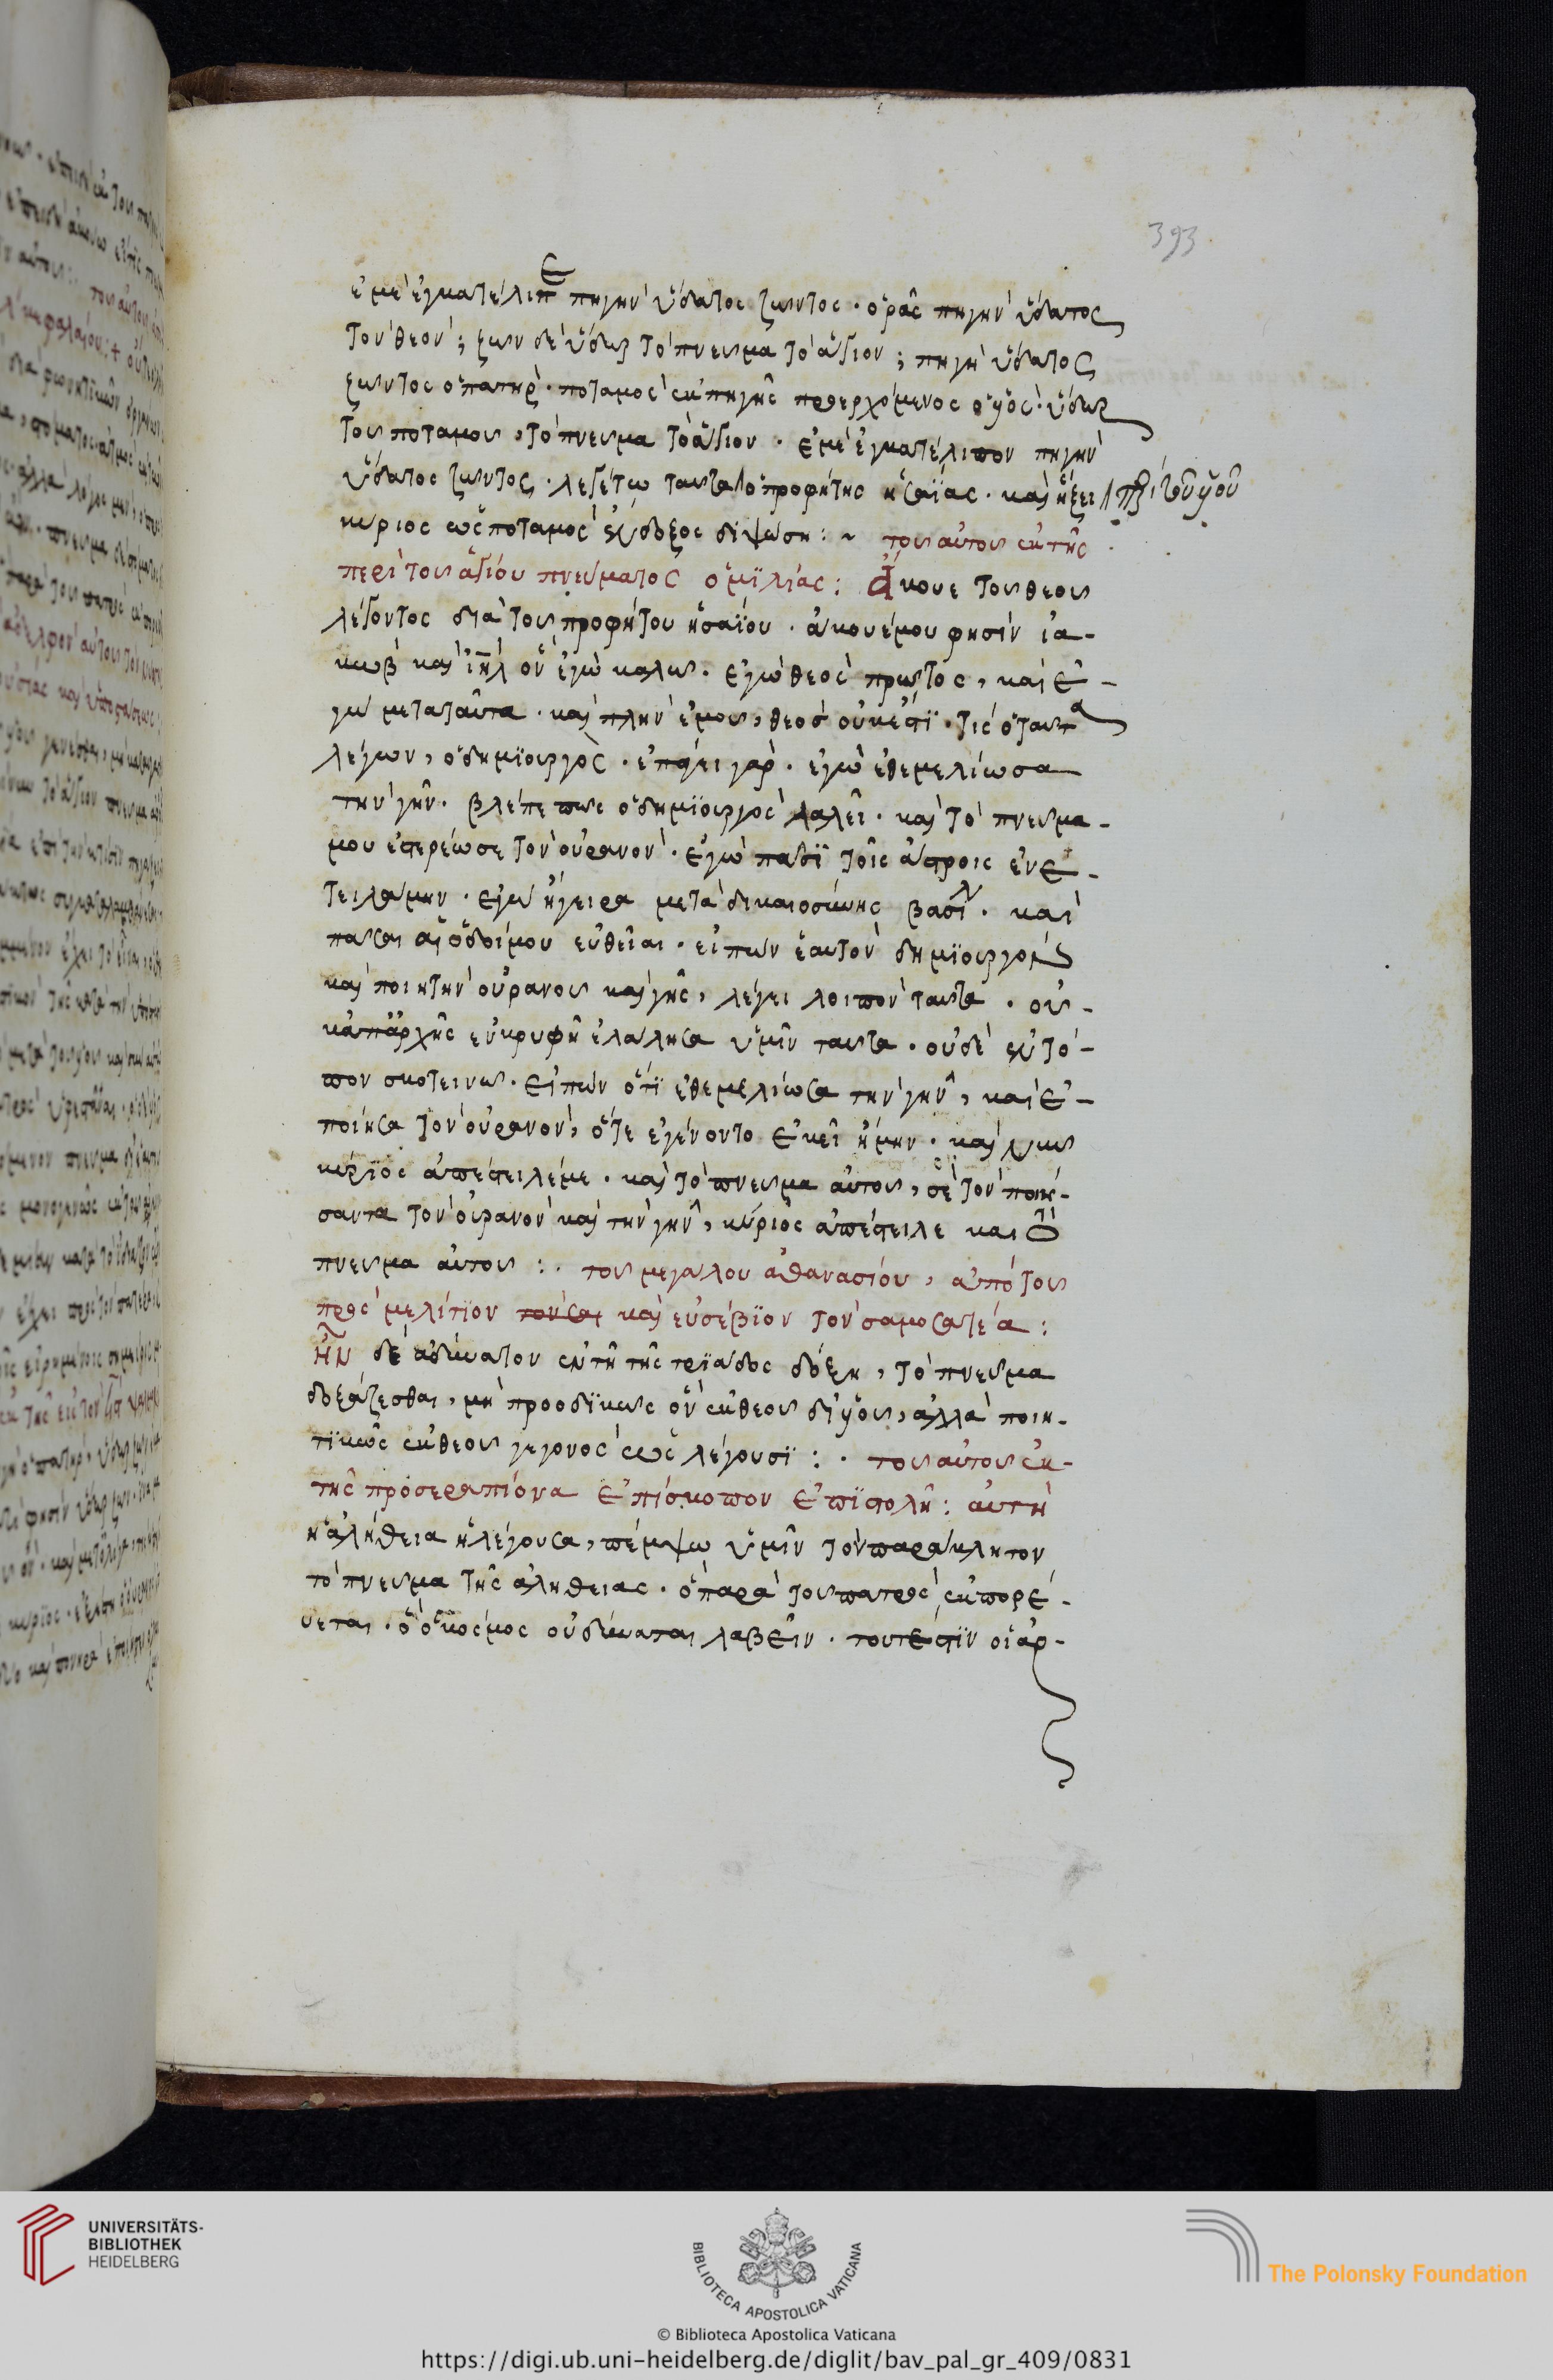 393
ἐμὲ ἐγκατέλιπε πηγὴν ὕδατος ζωντος · ὁρᾶς πηγὴν ὕδατος
τὸν θεόν ; ζων δὲ ὕδωρ τὸ πνευμα τὸ ἅγιον ; πηγὴ ὕδατος
ζωντος ὁ πατηρ · ποταμὸς ἐκ πηγῆς προερχόμενος ὁ υἱός · ὕδωρ
του ποταμου, τὸ πνευμα τὸ ἅγιον · ἐμὲ ἐγκατέλιπον πηγὴν
ὕδατος ζωντος · λεγέτω ταυτα ὁ προφήτης ἡσαΐας · καὶ ἥξει
περὶ τοῦ υἱοῦ
κυριος ὡς ποταμὸς ἔνδοξος διψωση : ~ του αὐτου ἐκ τῆς
περὶ του ἁγίου πνεύματος ὁμιλίας : ἄκουε του θεου
λέγοντος διὰ του προφήτου ἡσαΐου · ἀκουέ μου φησὶν ἰα-
κωβ καὶ ἰηλ ὃν ἐγὼ καλω · ἐγὼ θεὸς πρωτος, καὶ ἐ-
γω μετα ταῦτα · καὶ πλὴν ἐμου, θεὸς οὐκ ἔστι · τίς ὁ ταυτα
λέγων, ὁ δημιουργός · ἐπάγει γάρ · ἐγὼ ἐθεμελίωσα
τὴν γῆν · βλέπε πως ὁ δημιουργὸς λαλεῖ · καὶ τὸ πνευμα
μου ἐστερέωσε τὸν οὐρανόν · ἐγὼ πασι τοῖς ἄστροις ἐνε-
τειλάμην · ἐγω ἤγειρα μετὰ δικαιοσύνης βασιλ · καὶ
πασαι αἱ ὁδοί μου εὐθεῖαι · εἰπων ἑαυτὸν δημιουργὸν
καὶ ποιητὴν οὐρανου καὶ γῆς, λέγει λοιπὸν ταυτα · οὐ-
κ ἀπάρχῆς ἐν κρυφῆ ἐλάλησα ὑμῖν ταυτα · οὐδὲ ἐν τό-
πον σκοτεινω · εἰπὼν ὅτι ἐθεμελίωσα τὴν γῆν, καὶ ἐ-
ποίησα τὸν οὐρανόν, ὅτε ἐγένοντο ἐκεῖ ἤμην · καὶ νυν
κύριος ἀπέστειλέ με · καὶ τὸ πνευμα αὐτου, σὲ τὸν ποιή-
σαντα τὸν οὐρανὸν καὶ τὴν γῆν, κύριος ἀπέστειλε καὶ τὸ
πνευμα αὐτου : · του μεγάλου ἀθανασίου, ἀπὸ του
πρὸς μελίτιον καὶ εὐσέβιον τὸν σαμοσατέα :
ἦν δὲ ἀδύνατον ἐν τῆ τῆς τριάδος δόξη, τὸ πνευμα
δοξάζεσθαι, μὴ προοδικως ὂν ἐκ θεου δι υἱου, ἀλλὰ ποιη-
τικῶς ἐκ θεου γεγονὸς ὡς λέγουσι : · του αὐτου ἐκ
τῆς πρὸ σεραπίονα ἐπίσκοπον ἐπιστολῆ : αὐτὴ
ἡ ἀλήθεια ἡ λέγουσα, πέμψω ὑμῖν τὸν παράκλητον
τὸ πνευμα τῆς ἀληθειας · ὃ παρὰ του πατρὸς ἐκπορέ-
υεται · ὃ ὁ κόσμος οὐ δύναται λαβεῖν · τουτέστιν οἱ ἀρ-
UNIVERSITÄTS-
BIBLIOTHEK
HEIDELBERG
BIBLIOTECA APOSTOLICA VATICANA
The Polonsky Foundation
© Biblioteca Apostolica Vaticana
https://digi.ub.uni-heidelberg.de/diglit/bav_pal_gr_409/0831